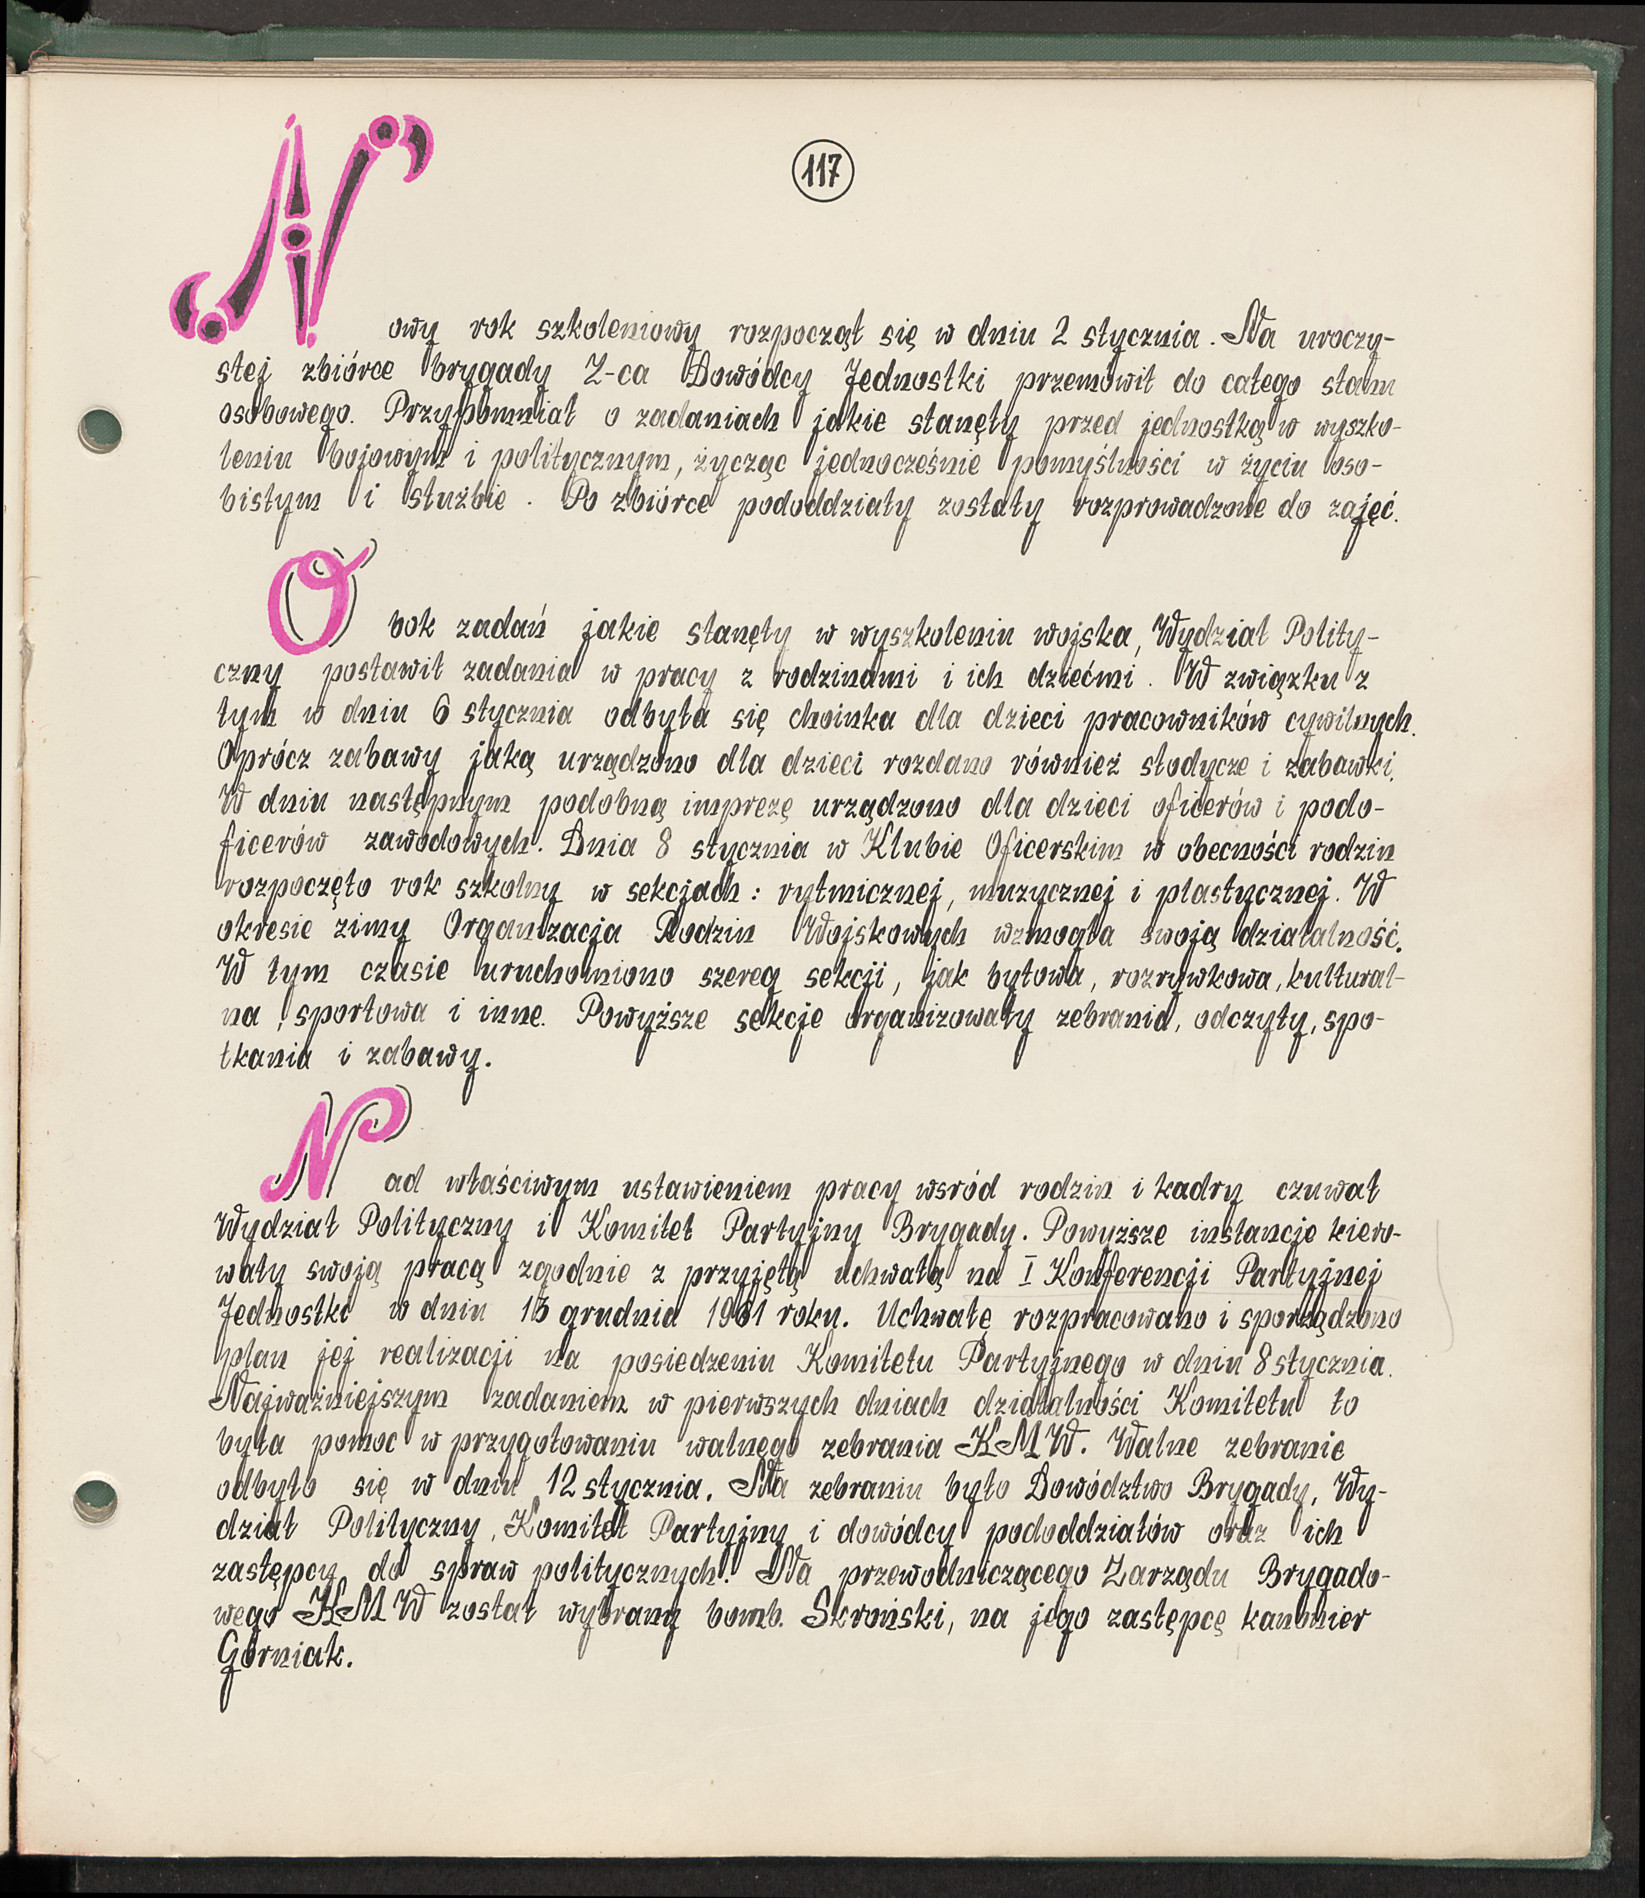 117
Nowy rok szkoleniowy rozpoczął się w dniu 2 stycznia. Na uroczy-
stej zbiórce brygady Z-ca Dowódcy Jednostki przemówił do całego stanu
osobowego. Przypomniał o zadaniach jakie stanęły przed jednostką w wyszko-
leniu bojowym i politycznym, życząc jednocześnie pomyślności w życiu oso-
bistym i służbie. Po zbiórce pododdziały zostały rozprowadzone do zajęć.
Obok zadań jakie stanęły w wyszkoleniu wojska, Wydział Polity-
czny postawił zadania w pracy z rodzinami i ich dziećmi. W związku z
tym w dniu 6 stycznia odbyła się choinka dla dzieci pracowników cywilnych.
Oprócz zabawy jaką urządzono dla dzieci rozdano również słodycze i zabawki.
W dniu następnym podobną imprezę urządzono dla dzieci oficerów i podo-
ficerów zawodowych. Dnia 8 stycznia w Klubie Oficerskim w obecności rodzin
rozpoczęto rok szkolny w sekcjach: rytmicznej, muzycznej i plastycznej. W
okresie zimy Organizacja Rodzin Wojskowych wzmogła swoją działalność.
W tym czasie uruchomiono szereg sekcji, jak bytowa, rozrywkowa, kultural-
na, sportowa i inne. Powyższe sekcje organizowały zebrania, odczyty, spo-
tkania i zabawy.
Nad właściwym ustawieniem pracy wsród rodzin i kadry czuwał
Wydział Polityczny i Komitet Partyjny Brygady. Powyższe instancje kiero-
wały swoją pracą zgodnie z przyjętą uchwałą na I Konferencji Partyjnej
Jednostki w dniu 13 grudnia 1961 roku. Uchwałę rozpracowano i sporządzono
plan jej realizacji na posiedzeniu Komitetu Partyjnego w dniu 8 stycznia.
Najważniejszym zadaniem w pierwszych dniach działalności Komitetu to
była pomoc w przygotowaniu walnego zebrania KMW. Walne zebranie
odbyło się w dniu 12 stycznia. Na zebraniu było Dowództwo Brygady, Wy-
dział Polityczny, Komitet Partyjny i dowódcy pododdziałów oraz ich
zastępcy do spraw politycznych. Na przewodniczącego Zarządu Brygado-
wego KMW został wybrany bomb. Skroński, na jego zastępcę kanonier
Górniak.